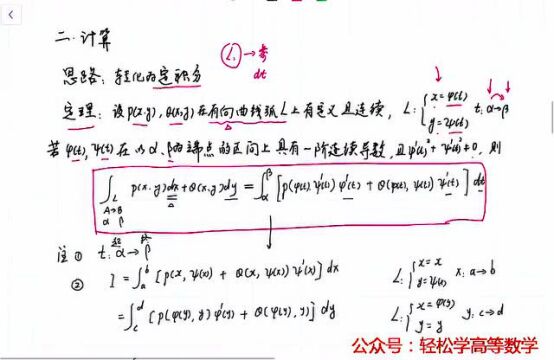 二. 计算
L → 参
dt
思路: 转化为定积分
定理: 设 P(x,y), Q(x,y) 在有向曲线弧 L 上有定义且连续, L: { x = φ(t) y = ψ(t) t: α→β
若 φ(t), ψ(t) 在以 α, β 为端点的区间上具有一阶连续导数, 且 φ'(t)² + ψ'(t)² ≠ 0, 则
∫_L P(x,y)dx + Q(x,y)dy = ∫_α^β [P(φ(t), ψ(t)) φ'(t) + Q(φ(t), ψ(t)) ψ'(t)] dt
A→B
α β
注 ① t: α → β
② I = ∫_a^b [P(x, ψ(x)) + Q(x, ψ(x)) ψ'(x)] dx L: { x = x y = ψ(x) x: a→b
= ∫_c^d [P(φ(y), y) φ'(y) + Q(φ(y), y)] dy L: { x = φ(y) y = y y: c→d
公众号：轻松学高等数学